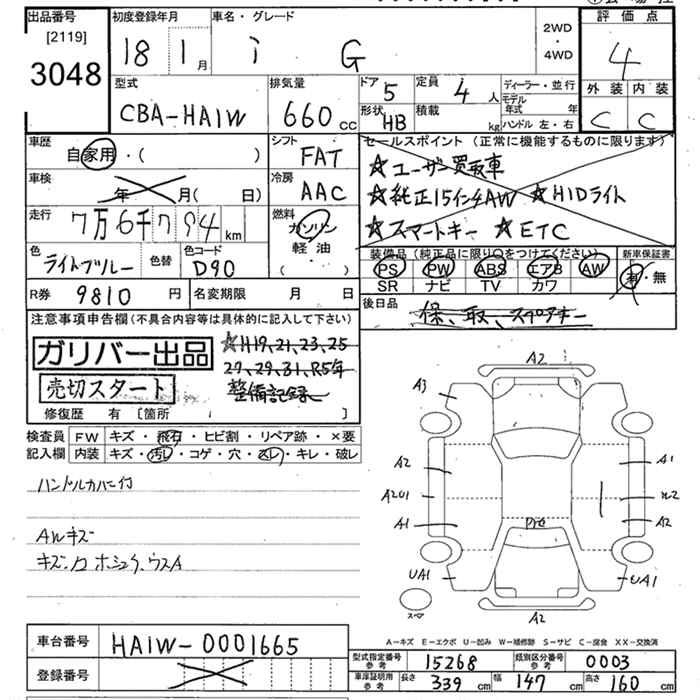 出品番号 初度登録年月 車名・グレード 評価点
[2119]
3048
18 1月 i G
2WD
・
4WD
4
型式 排気量 ドア 定員 ディーラー・並行 外装 内装
CBA-HA1W 660cc 5 4人
モデル年式 年
形状 HB 積載 kg ハンドル 左・右 C C
車歴 シフト セールスポイント (正常に機能するものに限ります)
自家用・( ) FAT
☆ユーザー買取車
車検 冷房
年 月( 日) AAC
☆純正15インチAW ☆HIDライト
走行 燃料
7万6千794km ガソリン
軽・油
( )
☆スマートキー ☆ETC
色 色替 色コード
ライトブルー D90
装備品 (純正品に限り○をつけてください) 新車保証書
PS PW ABS エアB AW 有・無
SR ナビ TV カワ
R券 9810円 名変期限 月 日
後日品 保、取、スペアキー
注意事項申告欄(不具合内容等は具体的に記入して下さい)
ガリバー出品
☆H19,21,23,25
27,29,31,R5年
整備記録
売切スタート
修復歴 有 [箇所 ]
検査員 FW キズ・飛石・ヒビ割・リペア跡・×要
記入欄 内装 キズ・汚レ・コゲ・穴・スレ・キレ・破レ
ハンドルカバー付
AWキズ
A2
A3
A2 A1
A2U1
A1 A2
UA1 UA1
A2
A-キズ E-エクボ U-凹み W-補修跡 S-サビ C-腐食 XX-交換済
車台番号 HA1W-0001665
登録番号
型式指定番号 参考 15268 類別区分番号 参考 0003
車庫証明用 参考 長さ 339cm 幅 147cm 高さ 160cm